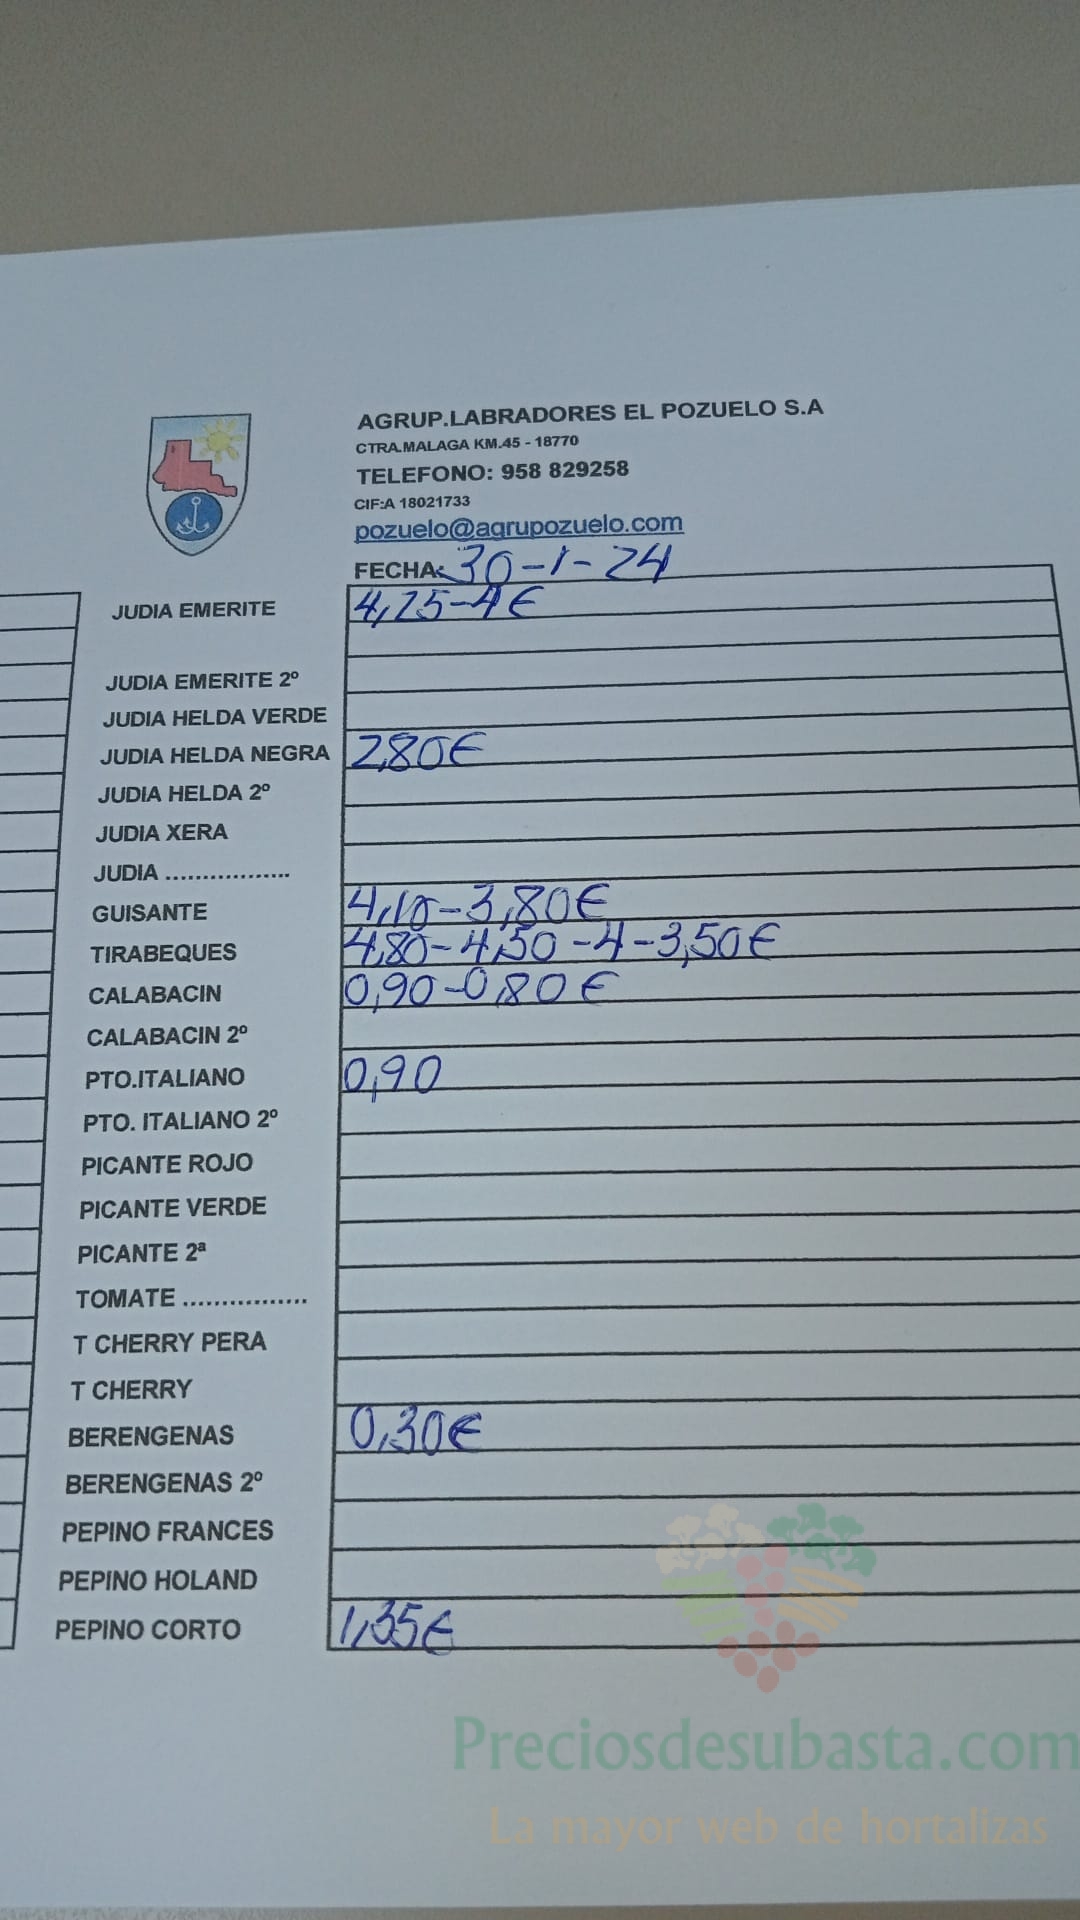 AGRUP.LABRADORES EL POZUELO S.A
CTRA.MALAGA KM.45 - 18770
TELEFONO: 958 829258
CIF:A 18021733
pozuelo@agrupozuelo.com
FECHA: 30-1-24
JUDIA EMERITE 4,25-4€
JUDIA EMERITE 2º
JUDIA HELDA VERDE
JUDIA HELDA NEGRA 2,80€
JUDIA HELDA 2º
JUDIA XERA
JUDIA .................
GUISANTE 4,10-3,80€
TIRABEQUES 4,80-4,50-4-3,50€
CALABACIN 0,90-0,80€
CALABACIN 2º
PTO.ITALIANO 0,90
PTO. ITALIANO 2º
PICANTE ROJO
PICANTE VERDE
PICANTE 2ª
TOMATE ................
T CHERRY PERA
T CHERRY
BERENGENAS 0,30€
BERENGENAS 2º
PEPINO FRANCES
PEPINO HOLAND
PEPINO CORTO 1,35€
Preciosdesubasta.com
La mayor web de hortalizas